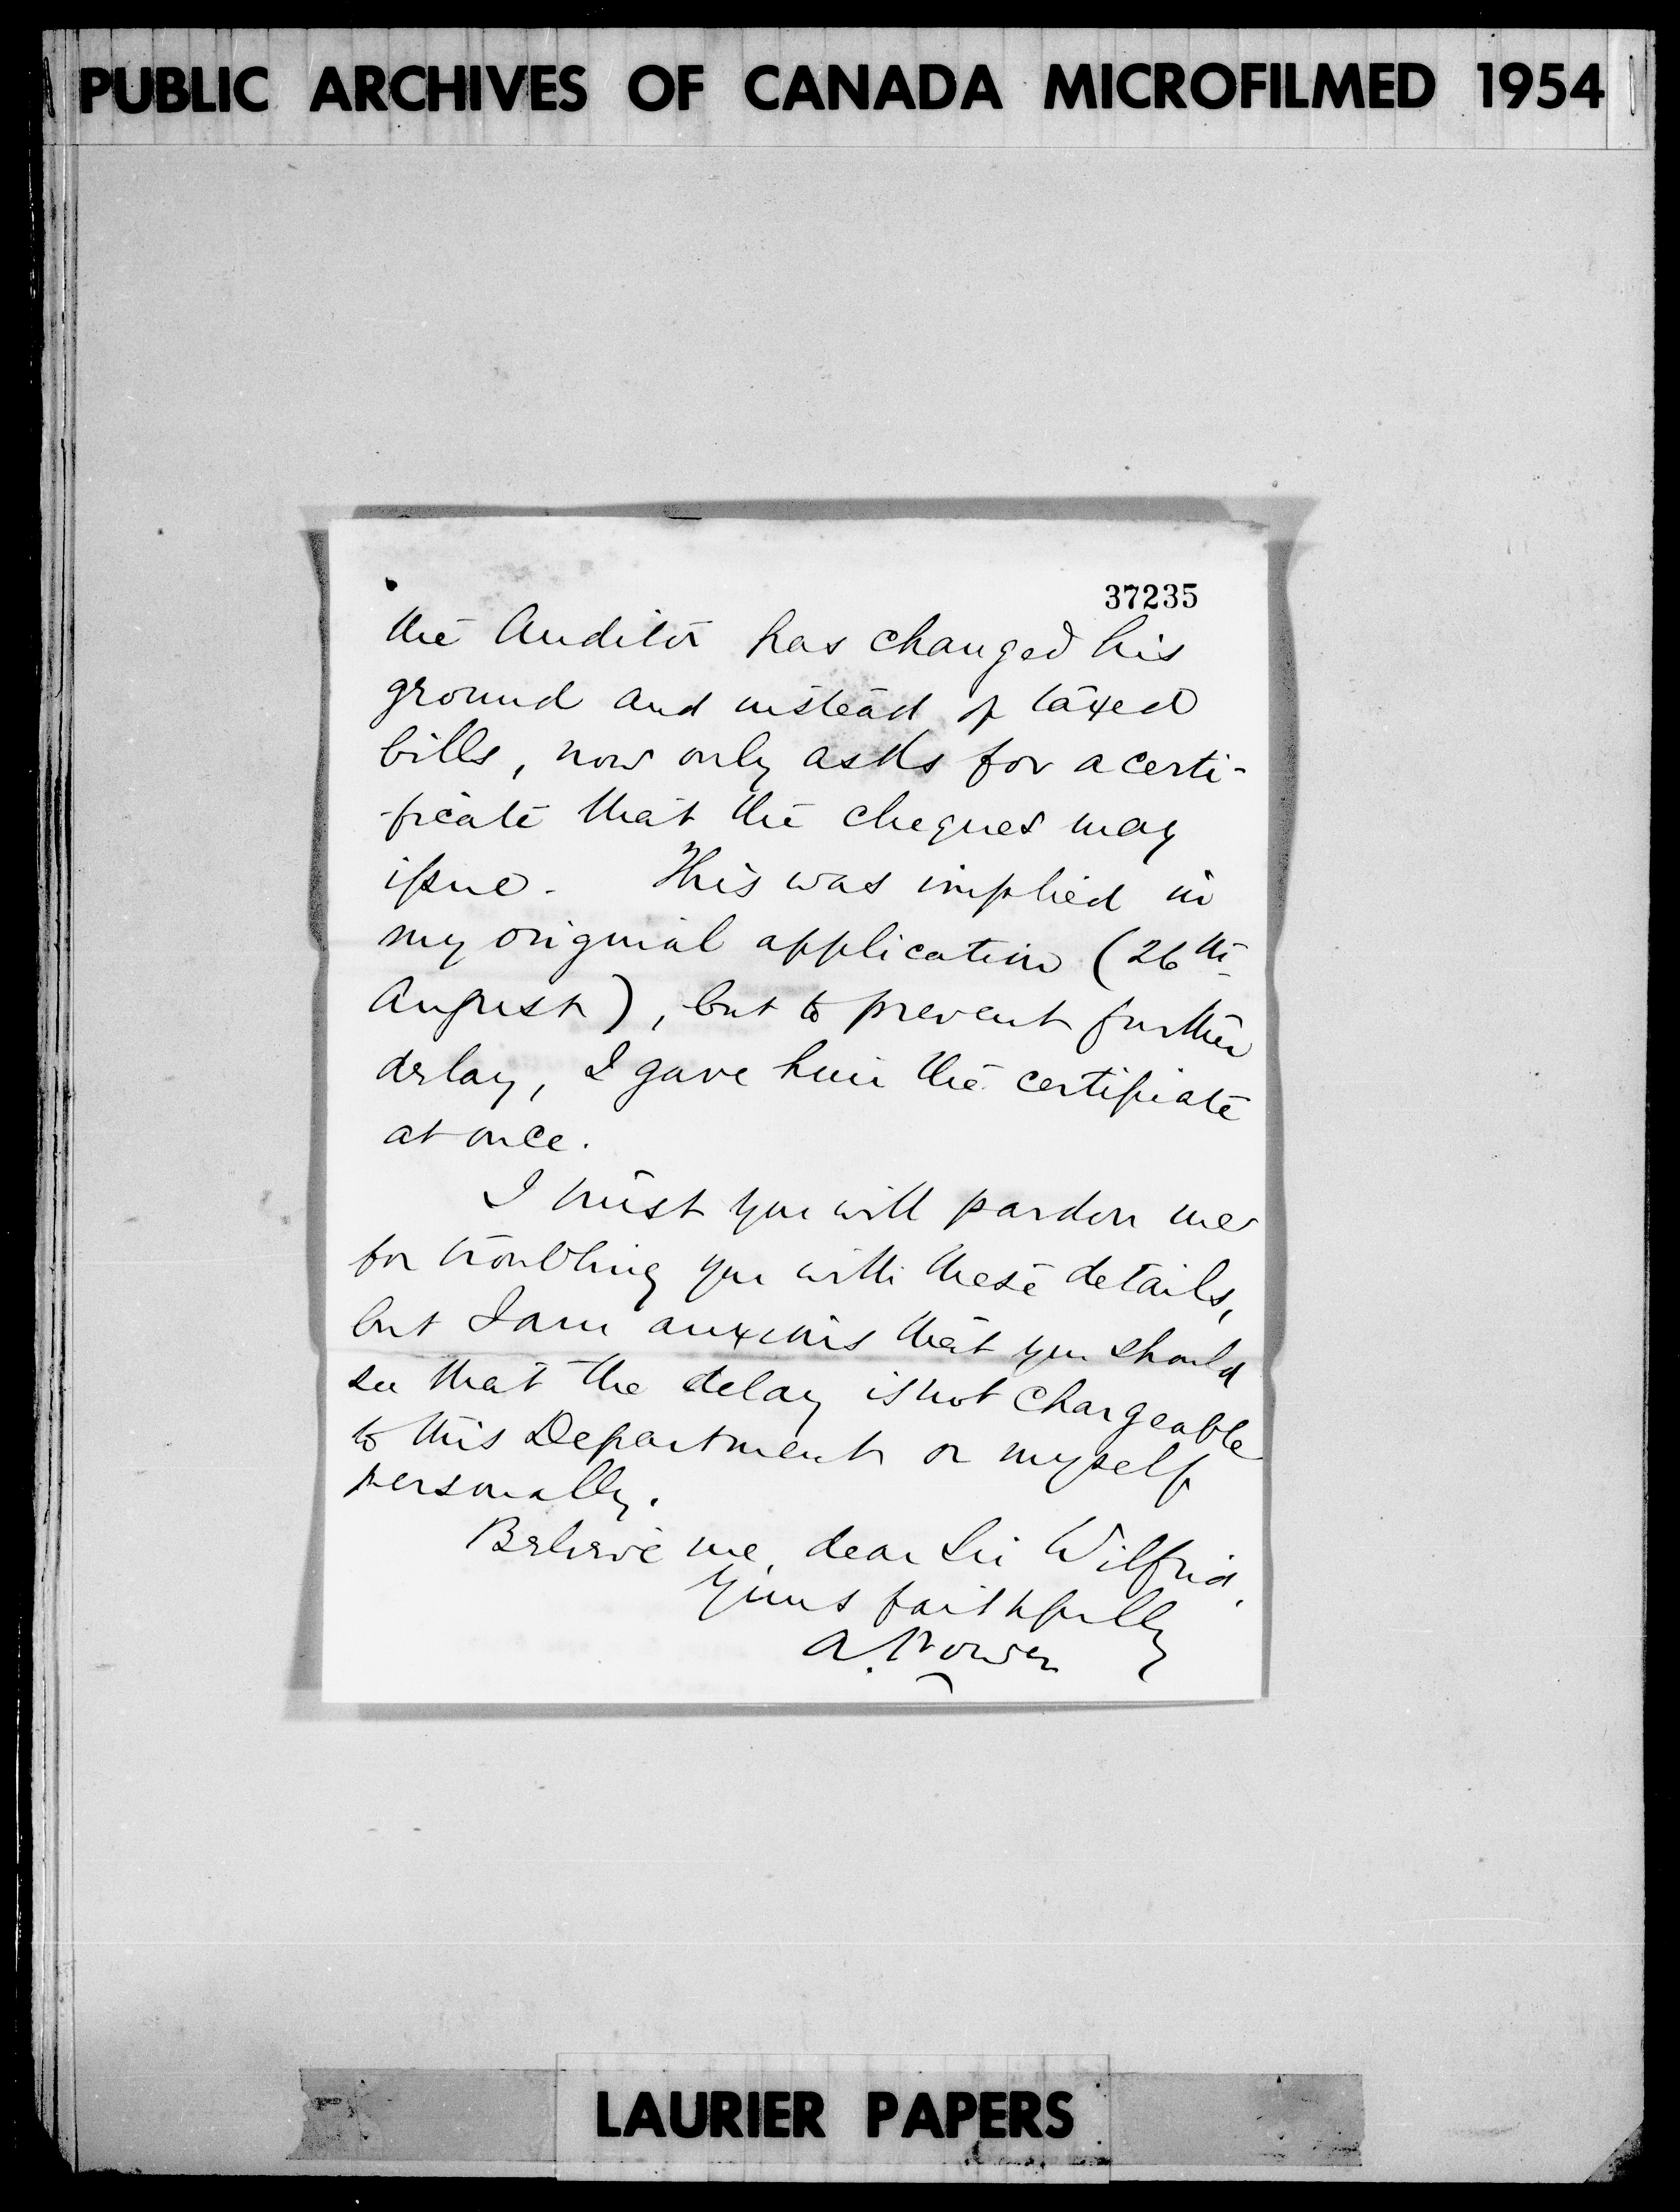 PUBLIC ARCHIVES OF CANADA MICROFILMED 1954
37235
the Auditor has changed his
ground and instead of taxed
bills, now only asks for a certi-
-ficate that the cheques may
issue. This was implied in
my original application (26th
August), but to prevent further
delay, I gave him the certificate
at once.
I trust you will pardon me
for troubling you with these details,
but I am anxious that you should
see that the delay is not chargeable
to this Department or myself
personally.
Believe me, dear Sir Wilfrid,
Yours faithfully
A. Power
LAURIER PAPERS